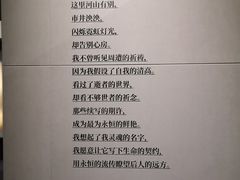 这里河山有别，
市井泱泱。
闪烁霓虹灯光，
却告别心房。
我不曾听见周遭的祈祷，
因为我假没了自我的清高。
看过了逝者的世界，
却看不够世者的念念。
那些续写的期许，
成为最为永恒的鲜艳。
我想起了我灵魂的名字，
我愿意让它写下生命的契约，
用永恒的流传瞭望后人的远方。